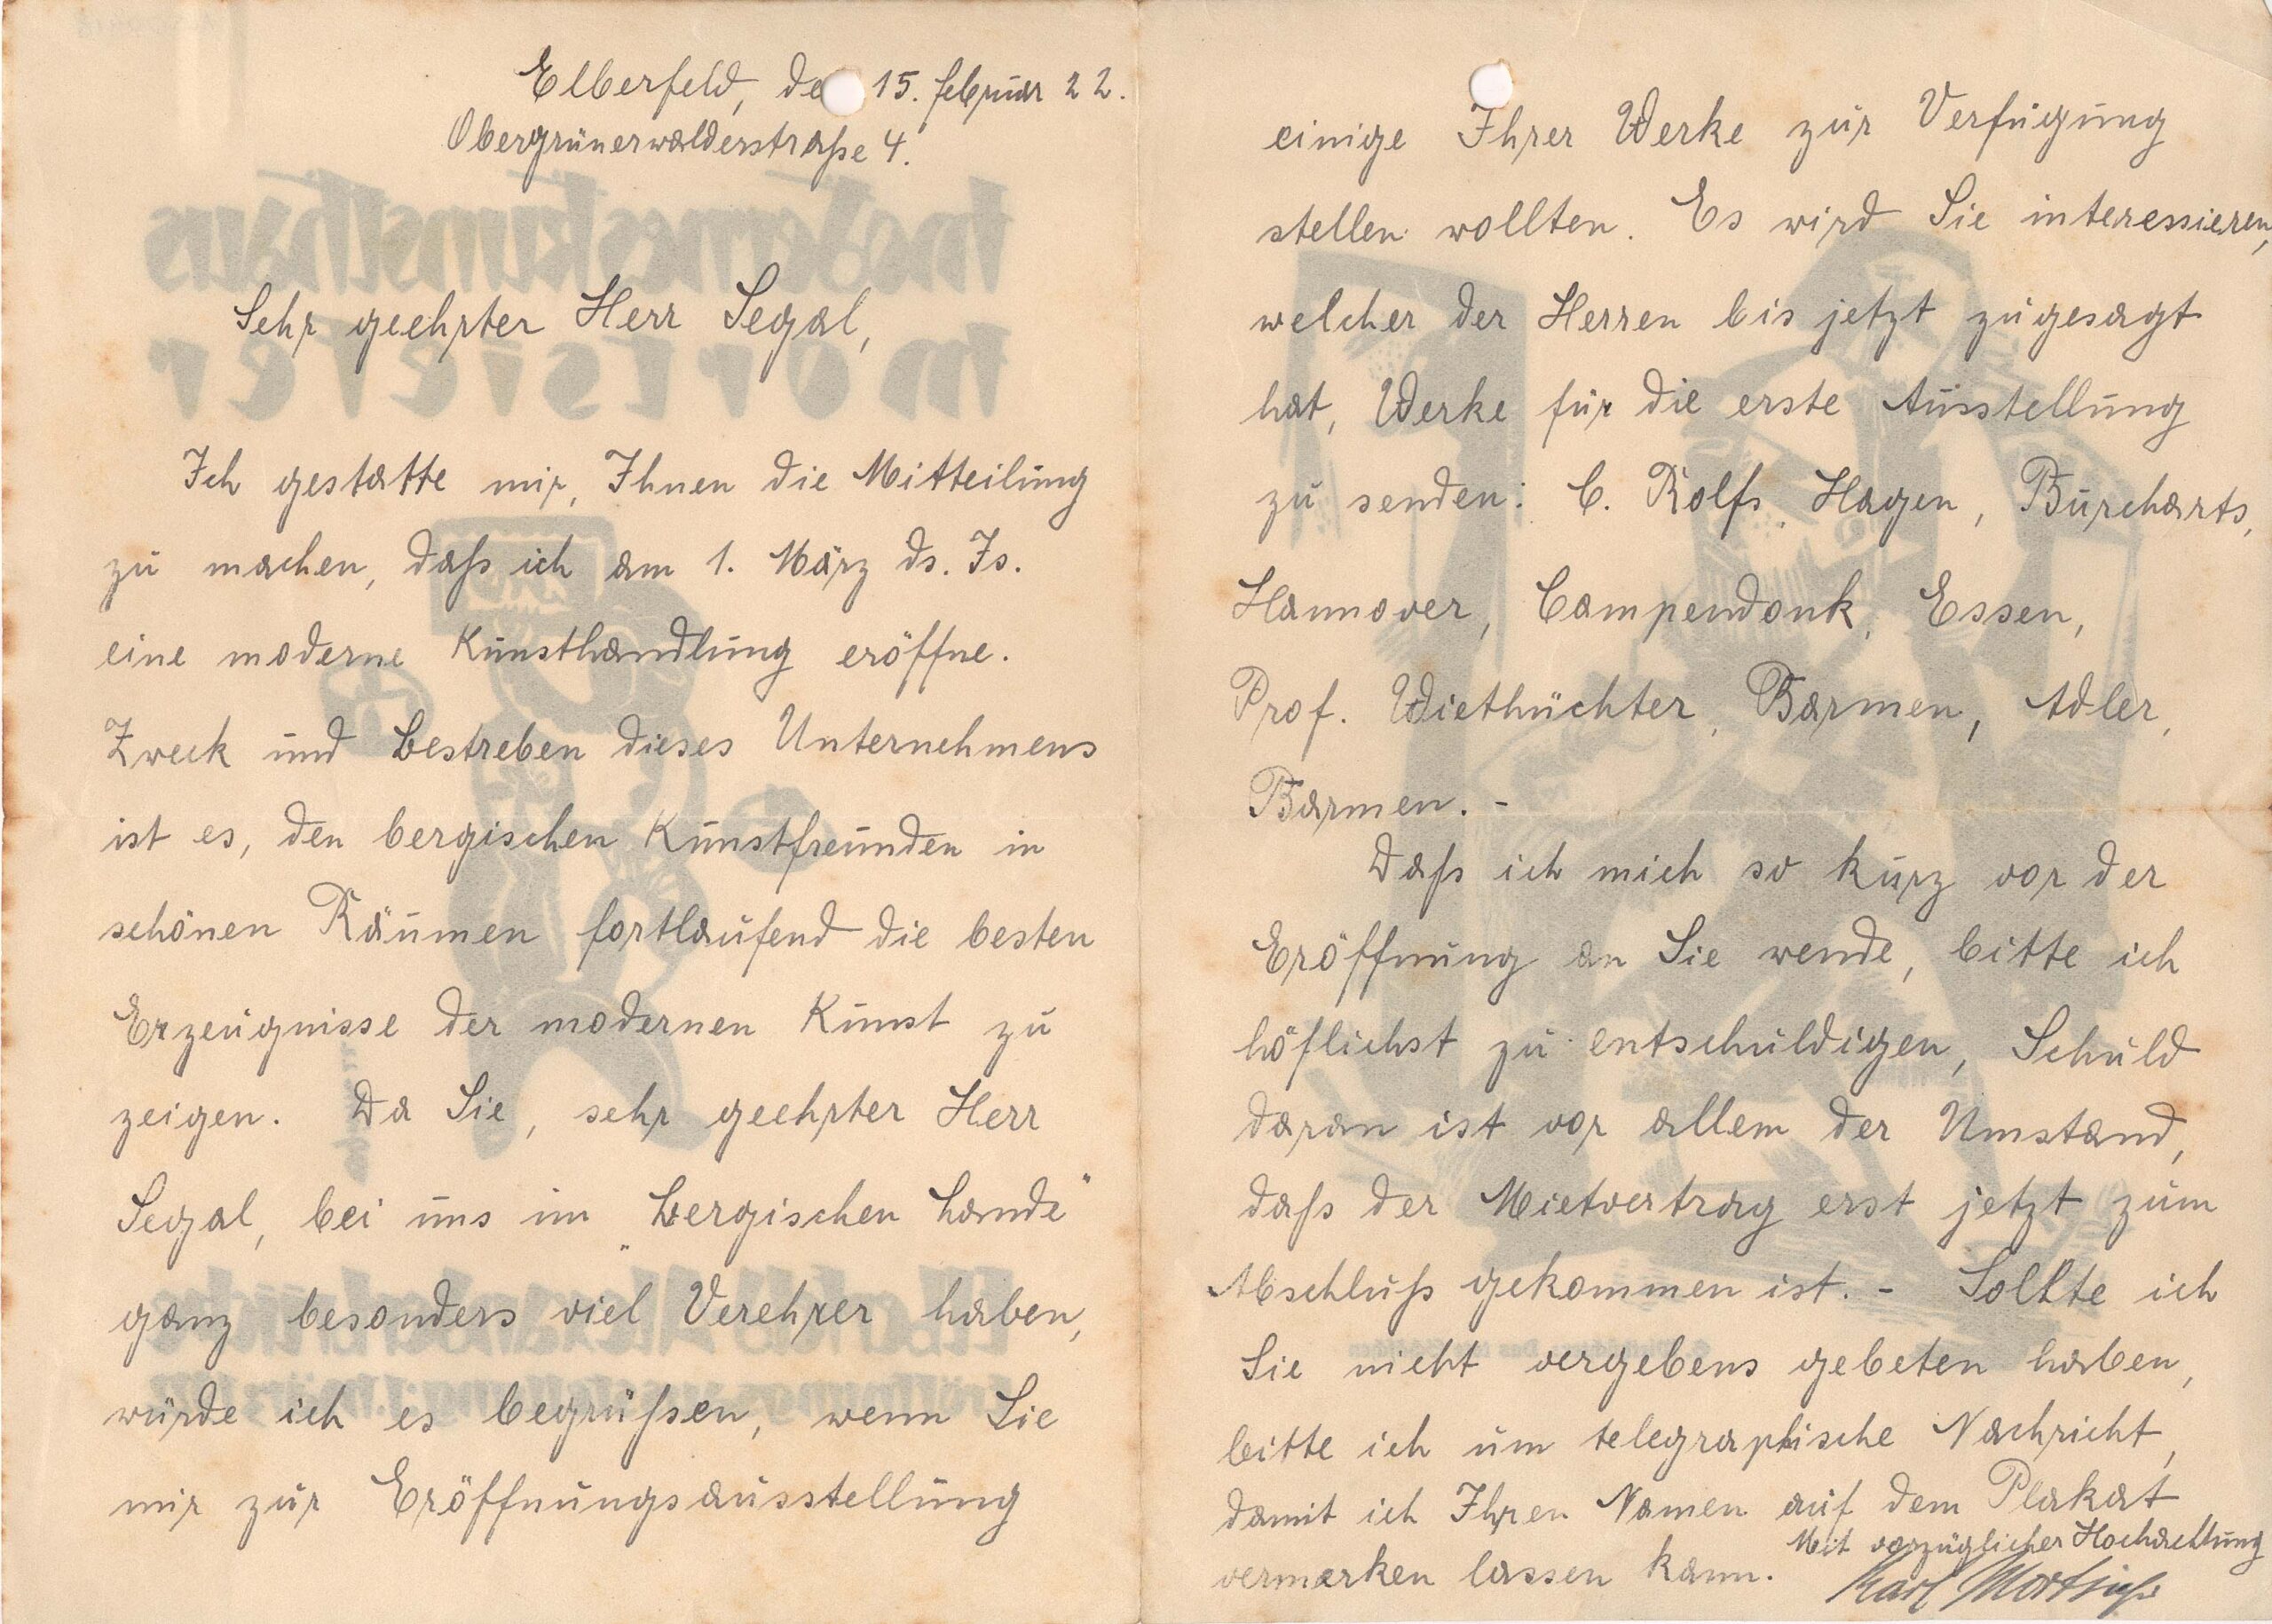 Elberfeld, de 15. Februar 22.
Obergrünerwalderstraße 4.
Sehr geehrter Herr Segal,
Ich gestatte mir, Ihnen die Mitteilung
zu machen, daß ich am 1. März ds. Js.
eine moderne Kunsthandlung eröffne.
Zweck und Bestreben dieses Unternehmens
ist es, den bergischen Kunstfreunden in
schönen Räumen fortlaufend die besten
Erzeugnisse der modernen Kunst zu
zeigen. Da Sie, sehr geehrter Herr
Segal, bei uns im „Bergischen Lande"
ganz besonders viel Verehrer haben,
würde ich es begrüßen, wenn Sie
mir zur Eröffnungsausstellung
einige Ihrer Werke zur Verfügung
stellen wollten. Es wird Sie interessieren,
welcher der Herren bis jetzt zugesagt
hat, Werke für die erste Ausstellung
zu senden: C. Rolfs, Hagen, Burcharts,
Hannover, Campendonk, Essen,
Prof. Wiethüchter, Barmen, Adler,
Barmen. -
Daß ich mich so kurz vor der
Eröffnung an Sie wende, bitte ich
höflichst zu entschuldigen, Schuld
daran ist vor allem der Umstand,
daß der Mietvertrag erst jetzt zum
Abschluß gekommen ist. - Sollte ich
Sie nicht vergebens gebeten haben,
bitte ich um telegraphische Nachricht,
damit ich Ihren Namen auf dem Plakat
vermerken lassen kann.
Mit vorzüglicher Hochachtung
Karl